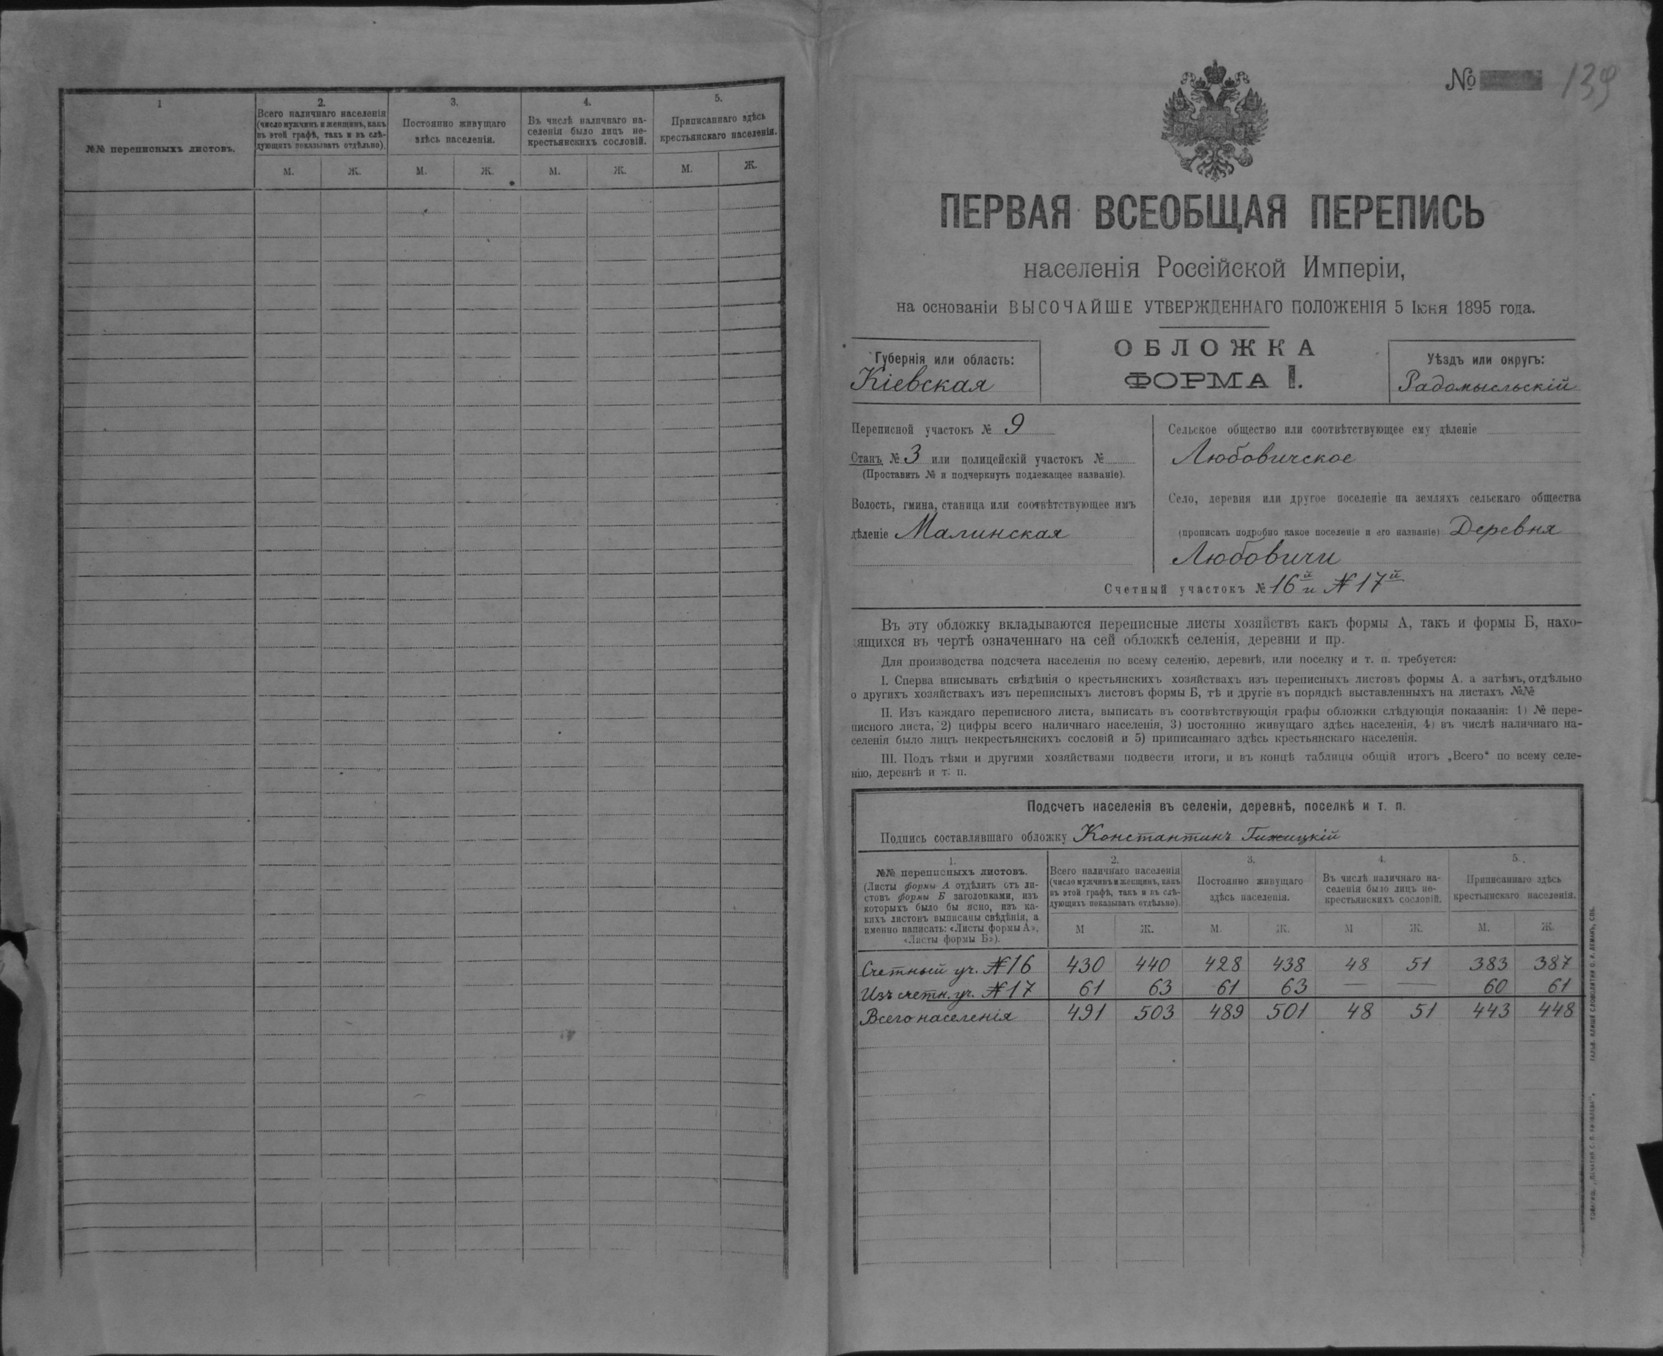 1
№№ переписныхъ листовъ.
2.
Всего наличнаго населенія
(число мужчинъ и женщинъ, какъ
въ этой графѣ, такъ и въ слѣ-
дующихъ показывать отдѣльно).
М. Ж.
3.
Постоянно живущаго
здѣсь населенія.
М. Ж.
4.
Въ числѣ наличнаго на-
селенія было лицъ не-
крестьянскихъ сословій.
М. Ж.
5.
Приписаннаго здѣсь
крестьянскаго населенія.
М. Ж.
№ 139
ПЕРВАЯ ВСЕОБЩАЯ ПЕРЕПИСЬ
населенія Россійской Имперіи,
на основаніи ВЫСОЧАЙШЕ УТВЕРЖДЕННАГО ПОЛОЖЕНІЯ 5 Іюня 1895 года.
Губернія или область:
Кіевская
ОБЛОЖКА
ФОРМА I.
Уѣздъ или округъ:
Радомысльскій
Переписной участокъ № 9
Станъ № 3 или полицейскій участокъ №
(Проставить № и подчеркнуть подлежащее названіе).
Волость, гмина, станица или соотвѣтствующее имъ
дѣленіе Малинская
Сельское общество или соотвѣтствующее ему дѣленіе
Любовичское
Село, деревня или другое поселеніе на земляхъ сельскаго общества
(прописать подробно какое поселеніе и его названіе) Деревня
Любовичи
Счетный участокъ № 16й и № 17й
Въ эту обложку вкладываются переписные листы хозяйствъ какъ формы А, такъ и формы Б, нахо-
дящихся въ чертѣ означеннаго на сей обложкѣ селенія, деревни и пр.
Для производства подсчета населенія по всему селенію, деревнѣ, или поселку и т. п. требуется:
I. Сперва вписывать свѣдѣнія о крестьянскихъ хозяйствахъ изъ переписныхъ листовъ формы А. а затѣмъ, отдѣльно
о другихъ хозяйствахъ изъ переписныхъ листовъ формы Б, тѣ и другіе въ порядкѣ выставленныхъ на листахъ №№
II. Изъ каждаго переписного листа, выписать въ соотвѣтствующія графы обложки слѣдующія показанія: 1) № пере-
писного листа, 2) цифры всего наличнаго населенія, 3) постоянно живущаго здѣсь населенія, 4) въ числѣ наличнаго на-
селенія было лицъ некрестьянскихъ сословій и 5) приписаннаго здѣсь крестьянскаго населенія.
III. Подъ тѣми и другими хозяйствами подвести итоги, и въ концѣ таблицы общій итогъ „Всего“ по всему селе-
нію, деревнѣ и т. п.
Подсчетъ населенія въ селеніи, деревнѣ, поселкѣ и т. п.
Подпись составлявшаго обложку Константинъ Гижицкій
1.
№№ переписныхъ листовъ.
(Листы формы А отдѣлить отъ ли-
стовъ формы Б заголовками, изъ
которыхъ было бы ясно, изъ ка-
кихъ листовъ выписаны свѣдѣнія, а
именно написать: «Листы формы А»,
«Листы формы Б»).
2.
Всего наличнаго населенія
(число мужчинъ и женщинъ, какъ
въ этой графѣ, такъ и въ слѣ-
дующихъ показывать отдѣльно).
М Ж.
3.
Постоянно живущаго
здѣсь населенія.
М. Ж.
4.
Въ числѣ наличнаго на-
селенія было лицъ не-
крестьянскихъ сословій.
М Ж.
5.
Приписаннаго здѣсь
крестьянскаго населенія.
М. Ж.
Счетный уч. № 16 430 440 428 438 48 51 383 387
Изъ счетн. уч. № 17 61 63 61 63 — — 60 61
Всего населенія 491 503 489 501 48 51 443 448